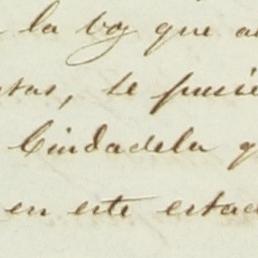 la voz que a
tas, se pusie
Ciudadela q
en este estad